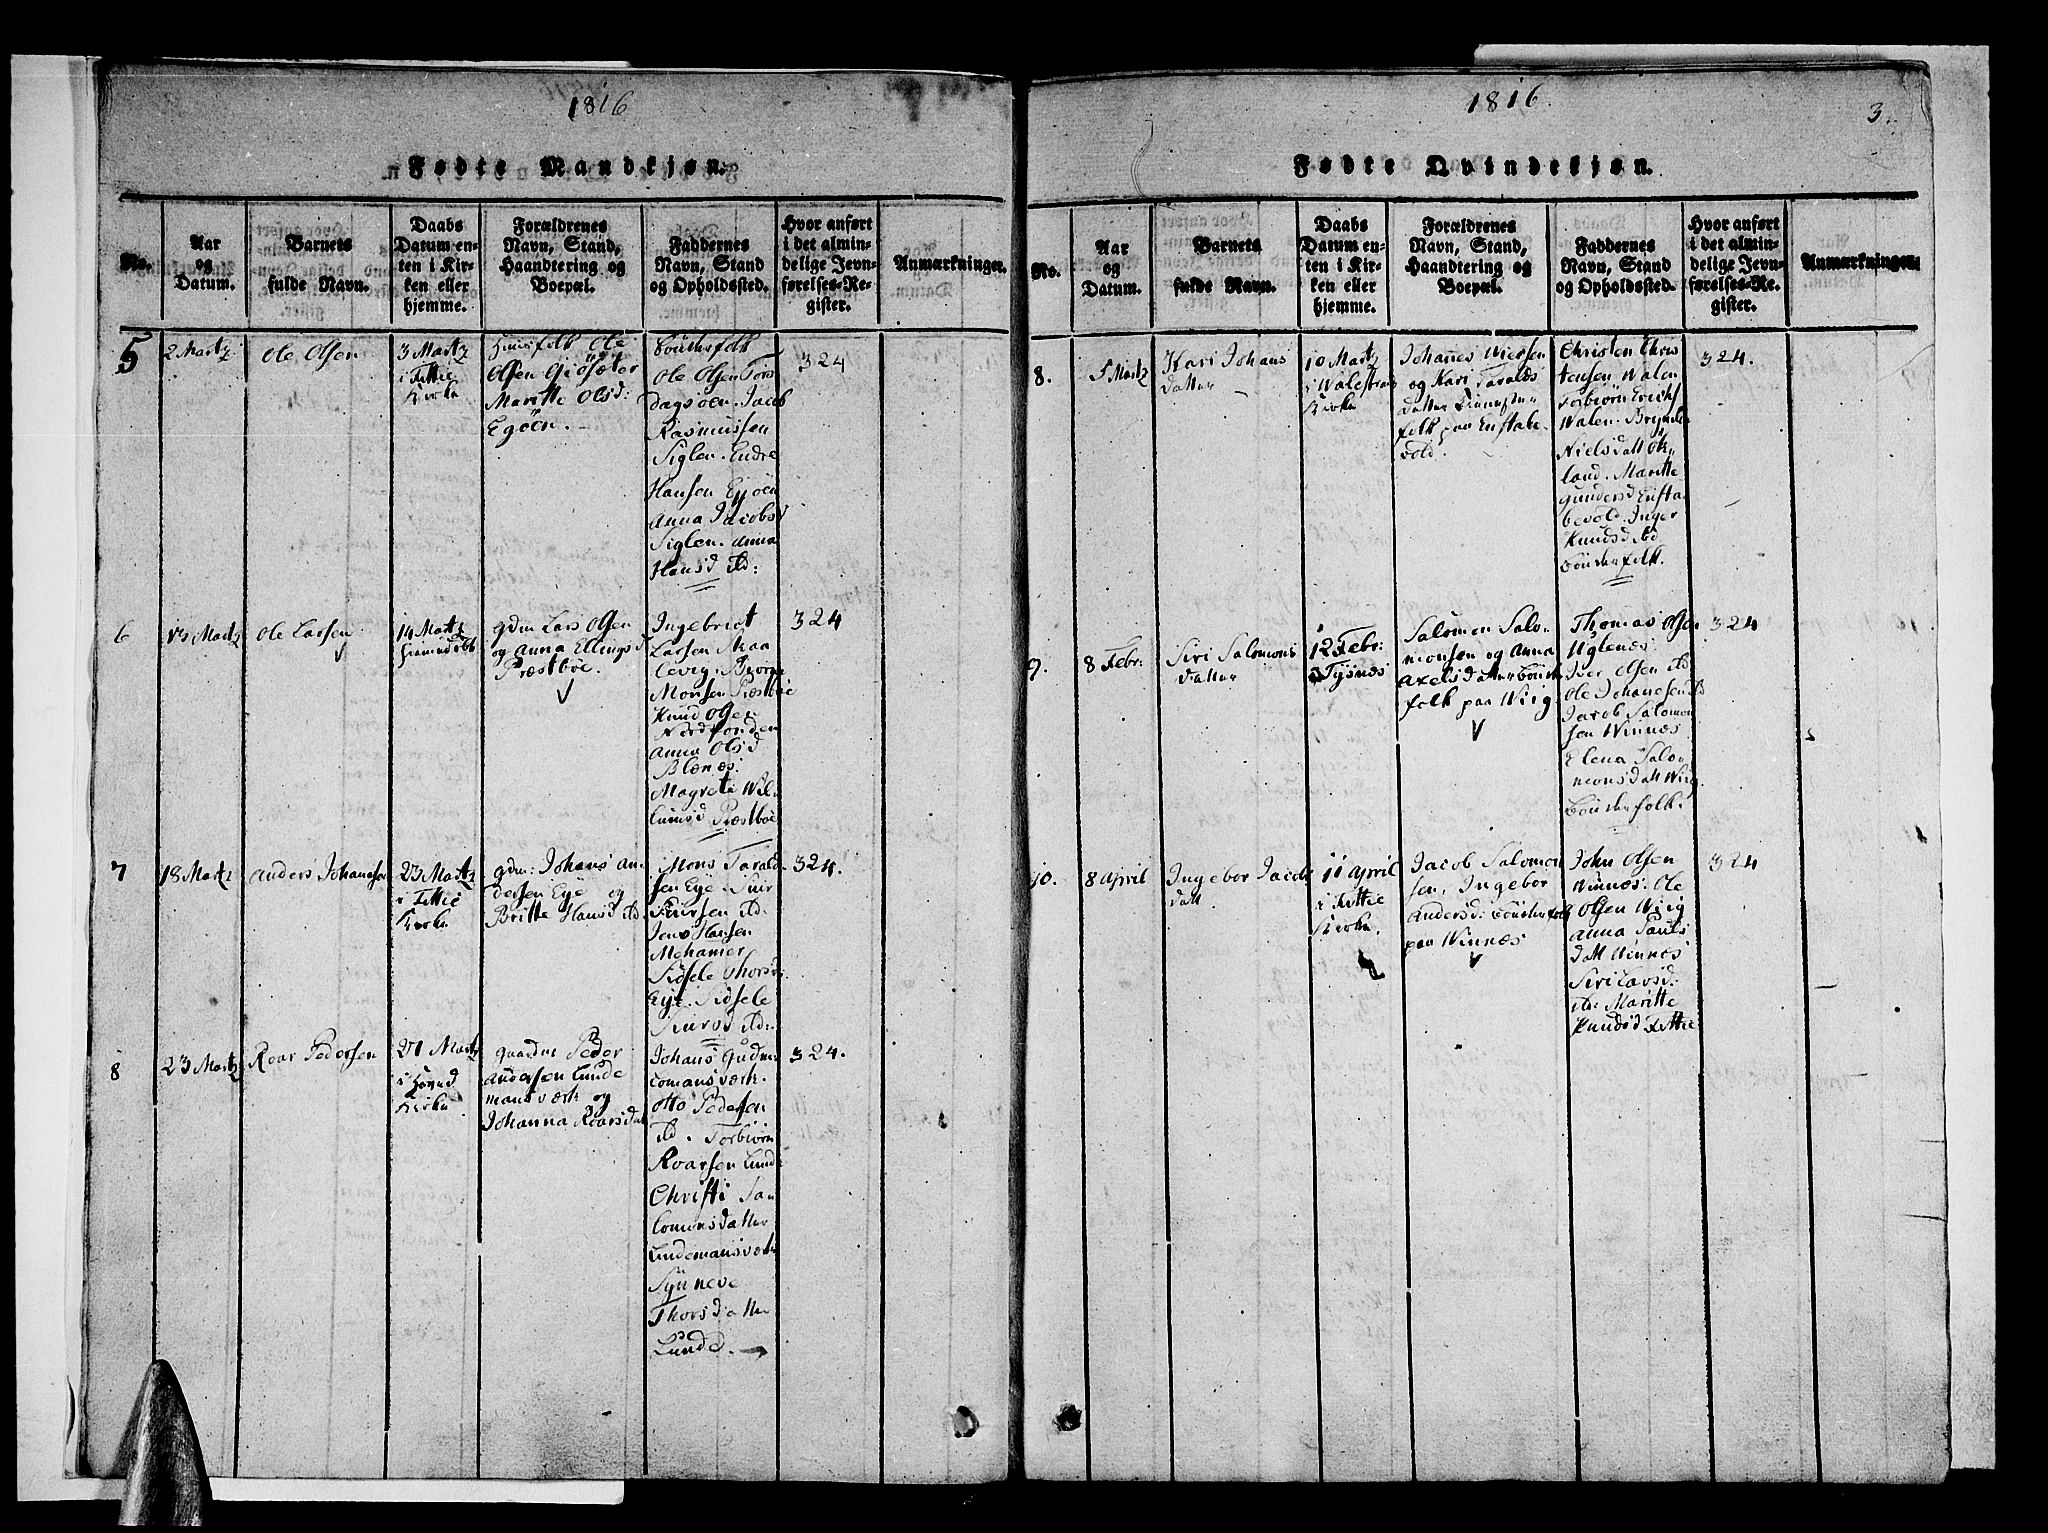 1816
Fødte Mandkjøn.
No.
Aar
og
Datum.
Barnets
fulde Navn.
Daabs
Datum en-
ten i Kir-
ken eller
hjemme.
Forældrenes
Navn, Stand,
Haandtering og
Boepæl.
Faddernes
Navn, Stand
og Opholdssted.
Hvor anført
i det almin-
delige Jevn-
førelses-Re-
gister.
Anmærkninger.
5
2 Martz
Ole Olsen
3 Martz
i Fittie
Kirke
Huusfolk Ole
Olsen
Maritte Olsd:
Egöen.
Ole Olsen Tors
dagsöen. Jacob
Rasmussen
Siglen. Endre
Hansen Egöen
Anna Jacobsd
Siglen. Anna
Hansd itd:
324
6
13 Martz
Ole Larsen
14 Martz
gdm Lars Olsen
og Anna Ellingsd
Præstböe.
Ingebrict
Larsen Skaa
levig. Biörne
Monsen Præstböe
Knud Olsen
Anna Olsd
Blænæs.
Magrete Wil-
lumsd Præstböe
324
7
18 Martz
Anders Johansen
23 Martz
i Fittie
Kirke
gdm: Johans An
dersen Eye og
Britte Hansd itd.
Mons Tarald
sen Eye. Siur
Siursen itd.
Jens Hansen
Mehamer
Sidsele Thorsd:
Eye. Sidsele
Siursd itd:
324.
8
23 Martz
Roar Pedersen
Martz
i
Kirke
gaardm Peder
Andersen Lunde
mansværk og
Johanna Roarsdat
Johans Gudm
Otto Pedersen
itd. Torbiörn
Roarsen Lunde
Christi Sa
lomonsdatter
Lundemansværk
Synneve
Thorsdatter
Lunde.
324.
1816.
3.
Fødte Qvindekjøn.
No.
Aar
og
Datum.
Barnets
fulde Navn.
Daabs
Datum en-
ten i Kir-
ken eller
hjemme.
Forældrenes
Navn, Stand,
Haandtering og
Boepæl.
Faddernes
Navn, Stand
og Opholdssted.
Hvor anført
i det almin-
delige Jevn-
førelses-Re-
gister.
Anmærkninger.
8.
5 Martz
Kari Johans
datter
10 Martz
i Walestrans
Kirke
Johannes
og Kari Taralds
datter
folk paa Enstabe-
vold.
Christen Chris
tensen Walen
Torbiörn Ericks
Walen. Brynele
Nielsdatt Ök-
land. Maritte
Gundersd Ensta
bevold. Inger
Knudsd itd
Bönderfolk.
324.
9.
8 Febr:
Siri Salomons
datter
12 Febr:
i Tysnes
Salomon Salo-
monsen og Anna
Axelsdatter Bönder
folk paa Wiig.
Thomas Olsen
Uglenes.
Iver Olsen itd
Ole Johanesen itd
Jacob Salomon
sen Winnæs
Elena Salo-
monsdatt Wiig
Bönderfolk.
324
10.
8 April
Ingebor Jacobs
datt
11 April
i Fittie
Kirke.
Jacob Salomon
sen, Ingebor
Andersd: Bönderfolk
paa Winnæs
John Olsen
Winnæs. Ole
Olsen Wiig
Anna Pauls
datt Winnæs
Siri Larsd:
itd: Maritte
Knudsd Fittie
324